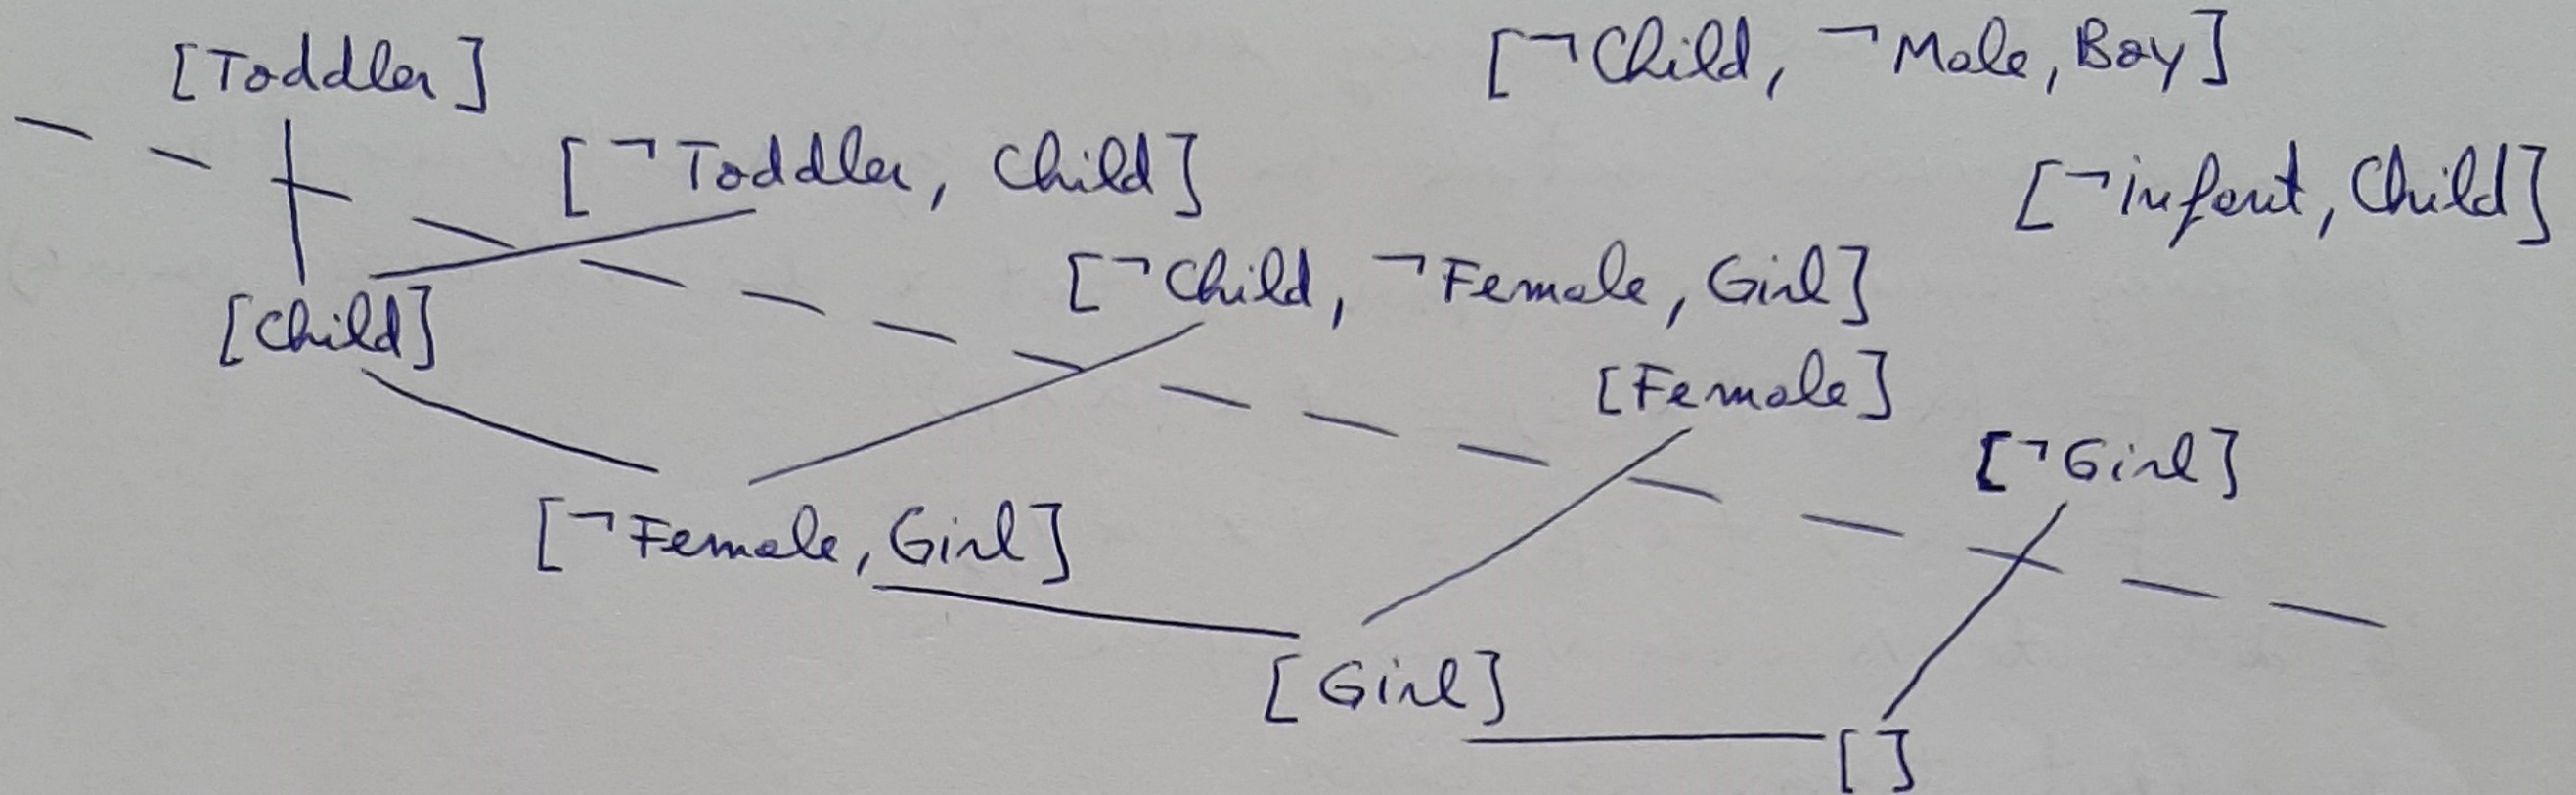 [Toddler]
[¬Child, ¬Male, Boy]
[¬Toddler, Child]
[¬infant, Child]
[¬Child, ¬Female, Girl]
[Child]
[Female]
[¬Girl]
[¬Female, Girl]
[Girl]
[]